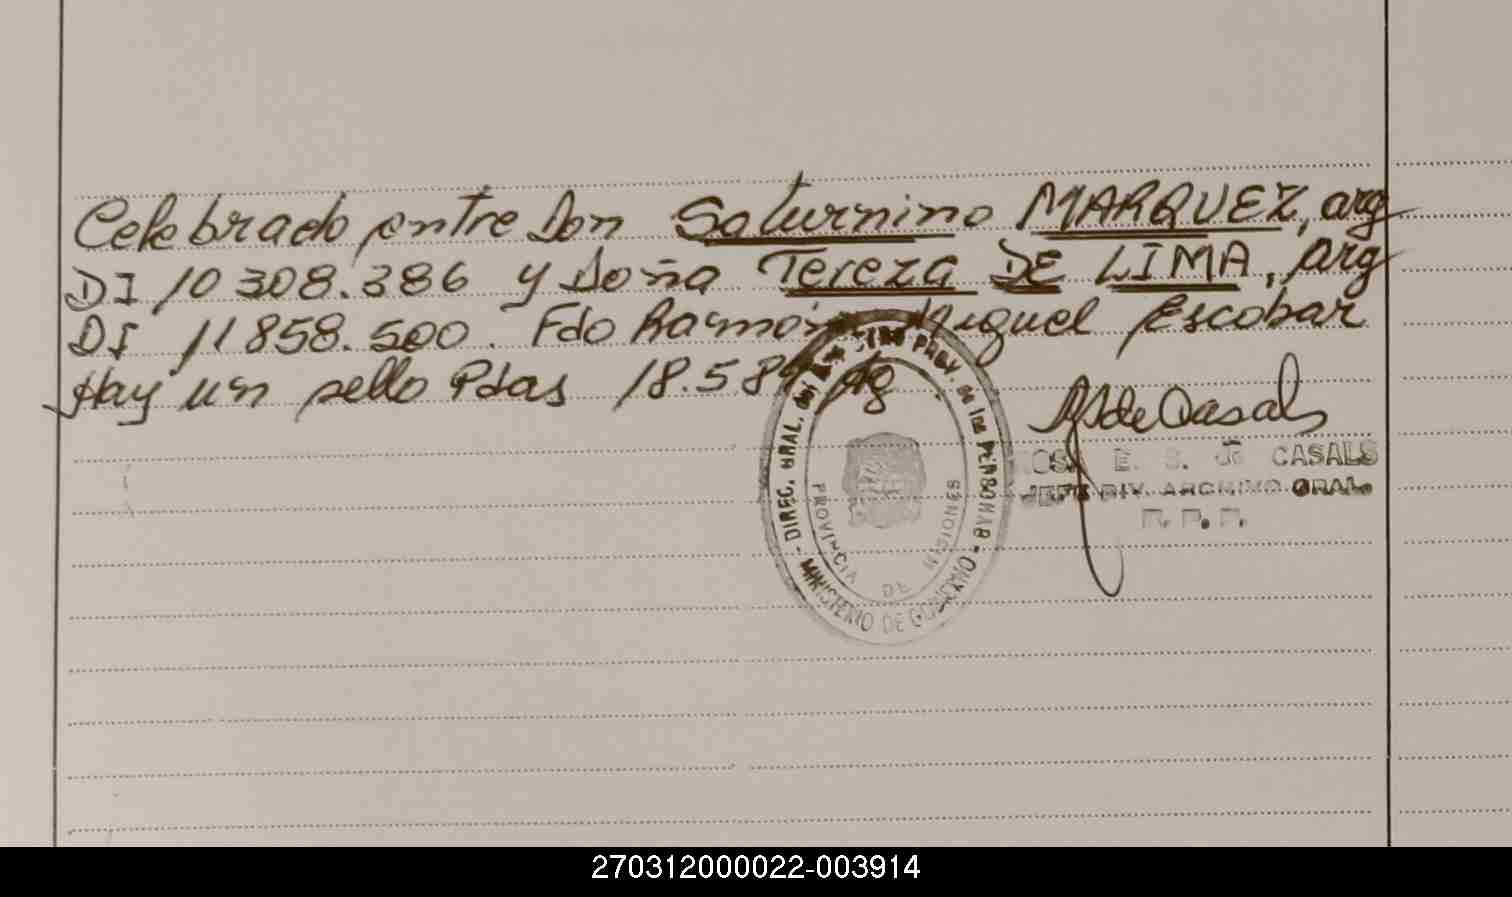 Celebrado entre Don Saturnino MARQUEZ, arg
DI 10308.386 y Doña Tereza DE LIMA, Arg
DI 11858.500. Fdo Ramón Miguel Escobar
Hay un sello Pdas 18.5.87 Ag
DIREC. GRAL. del PROV. de las PERSONAS
PROVINCIA DE MISIONES
MINISTERIO DE GOBIERNO
E. S. de CASALS
JEFE DIV. ARCHIVO GRAL.
270312000022-003914